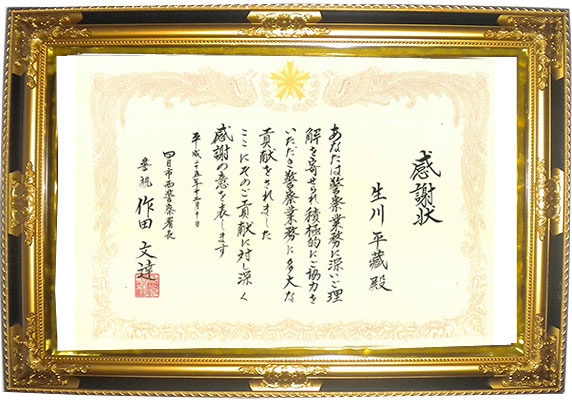 感謝状
生川平藏殿
あなたは警察業務に深いご理
解を寄せられ積極的にご協力を
いただき警察業務に多大な
貢献をされました
ここにそのご貢献に対し深く
感謝の意を表します
平成二十五年十二月十日
四日市西警察署長
警視 作田文達